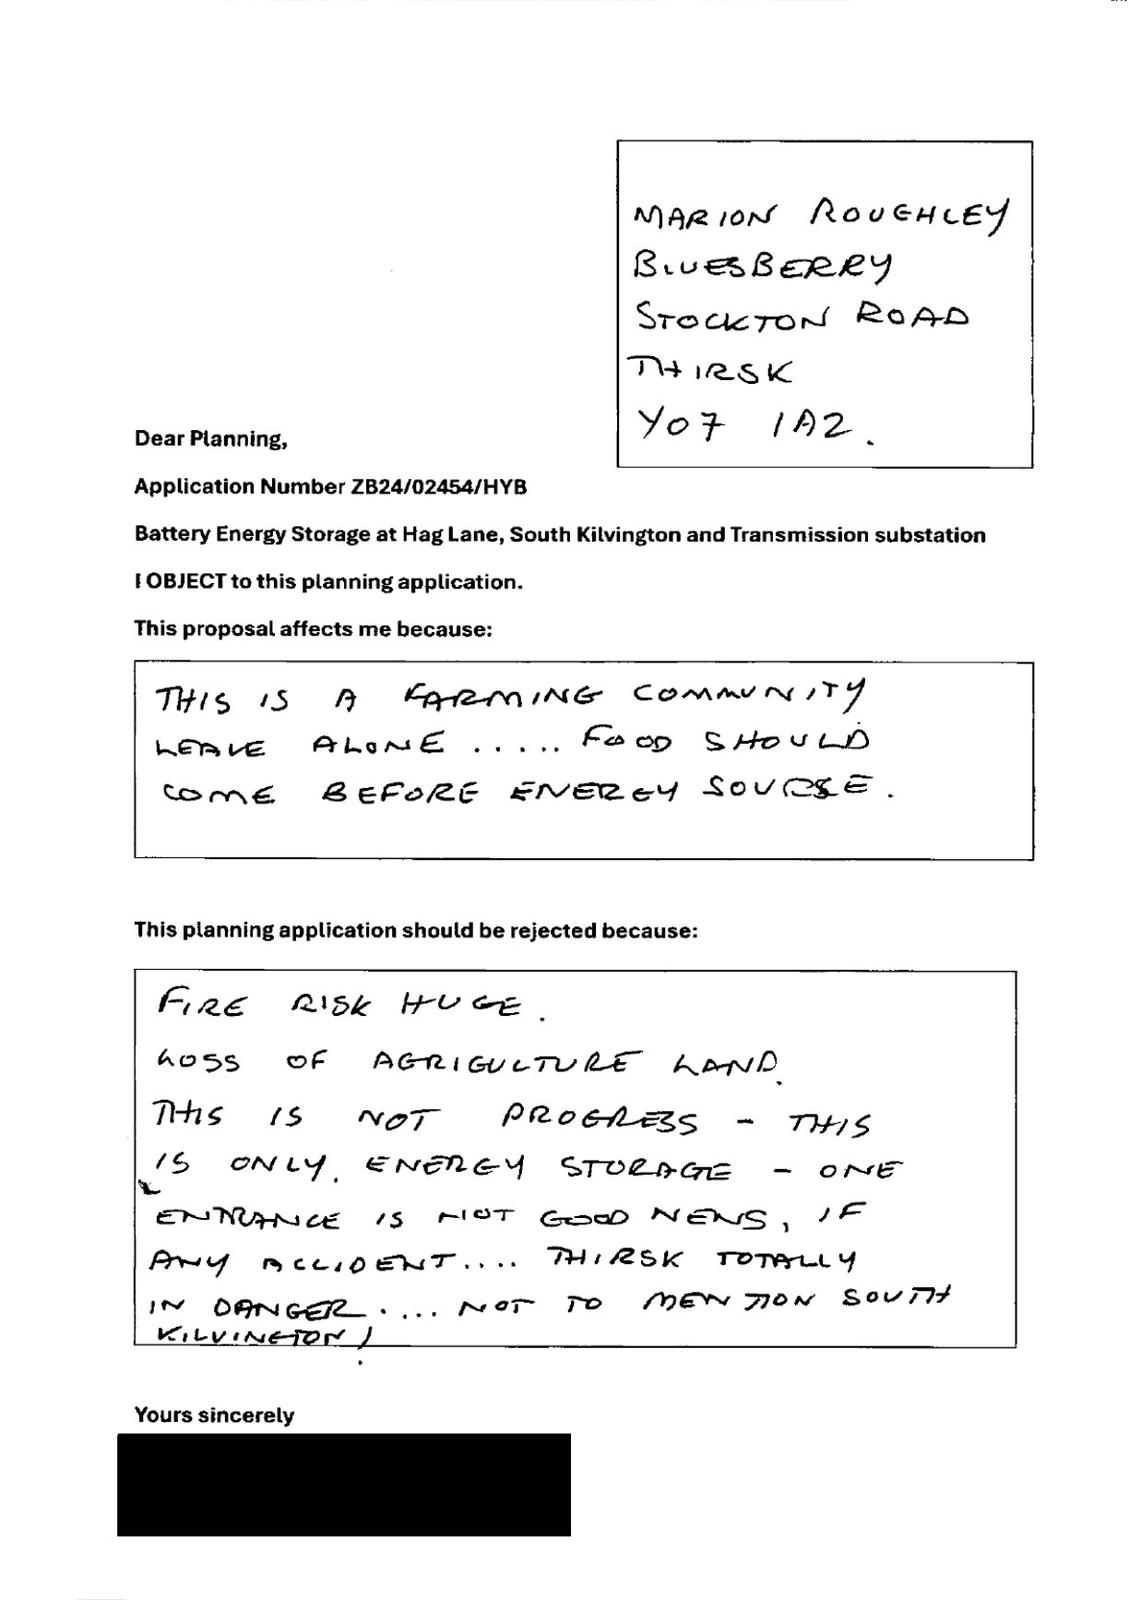 MARION ROUGHLEY
BLUESBERRY
STOCKTON ROAD
THIRSK
YO7 1A2.
Dear Planning,
Application Number ZB24/02454/HYB
Battery Energy Storage at Hag Lane, South Kilvington and Transmission substation
I OBJECT to this planning application.
This proposal affects me because:
THIS IS A FARMING COMMUNITY
LEAVE ALONE ..... FOOD SHOULD
COME BEFORE ENERGY SOURSE.
This planning application should be rejected because:
FIRE RISK HUGE.
LOSS OF AGRIGULTURE LAND.
THIS IS NOT PROGRESS - THIS
IS ONLY. ENERGY STORAGE - ONE
ENTRANCE IS NOT GOOD NEWS, IF
ANY ACCIDENT.... THIRSK TOTALLY
IN DANGER.... NOT TO MENTION SOUTH
KILVINGTON!
Yours sincerely